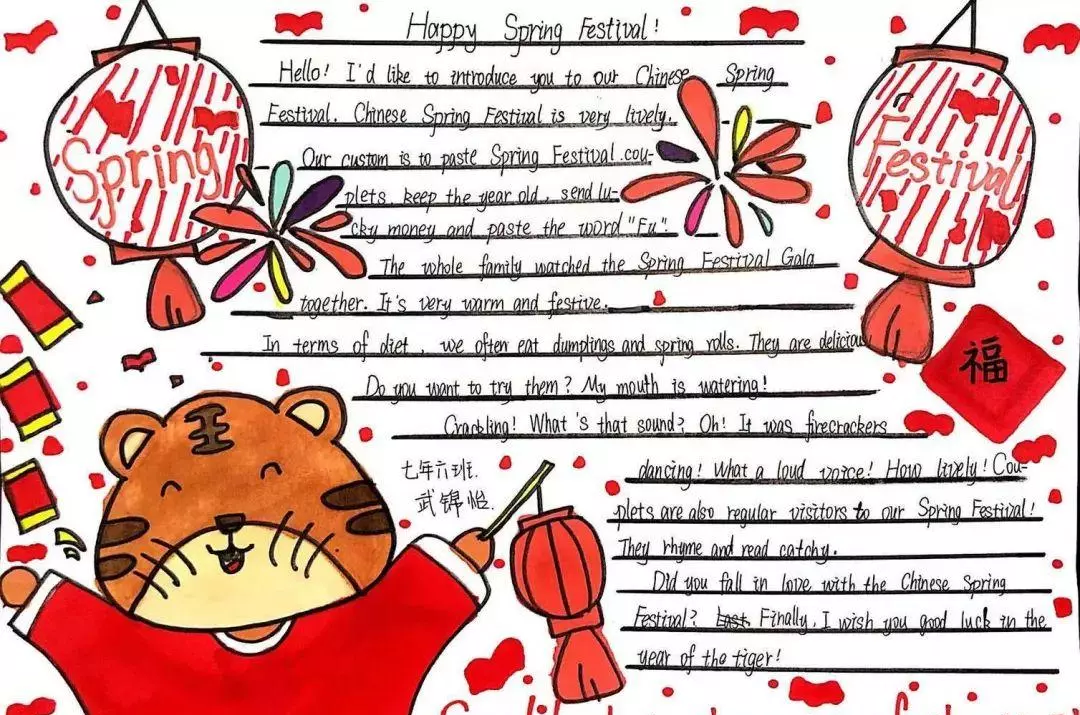 Happy Spring Festival!
Hello! I'd like to introduce you to our Chinese Spring
Festival. Chinese Spring Festival is very lively.
Our custom is to paste Spring Festival cou-
plets, keep the year old, send lu-
cky money and paste the word "Fu".
The whole family watched the Spring Festival Gala
together. It's very warm and festive.
In terms of diet, we often eat dumplings and spring rolls. They are delicious
Do you want to try them? My mouth is watering!
Crackling! What's that sound? Oh! It was firecrackers
dancing! What a loud voice! How lively! Cou-
plets are also regular visitors to our Spring Festival!
They rhyme and read catchy.
Did you fall in love with the Chinese Spring
Festival? Last Finally, I wish you good luck in the
year of the tiger!
Spring
Festival
福
王
七年六班.
武锦怡.